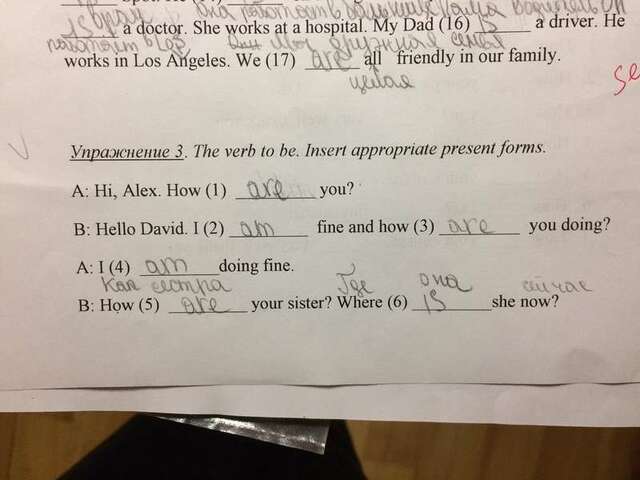 она работает в
врач
is a doctor. She works at a hospital. My Dad (16) is a driver. He
работает в Los
works in Los Angeles. We (17) are all friendly in our family.
целая
Упражнение 3. The verb to be. Insert appropriate present forms.
A: Hi, Alex. How (1) are you?
B: Hello David. I (2) am fine and how (3) are you doing?
A: I (4) am doing fine.
Как сестра Где она сейчас
B: How (5) are your sister? Where (6) is she now?